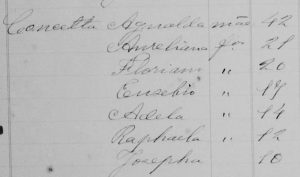 Concetta Agnalda mãe 42
Aureliano fo 21
Floriani " 20
Eusebio " 17
Adela " 14
Raphaela " 12
Josepha " 10